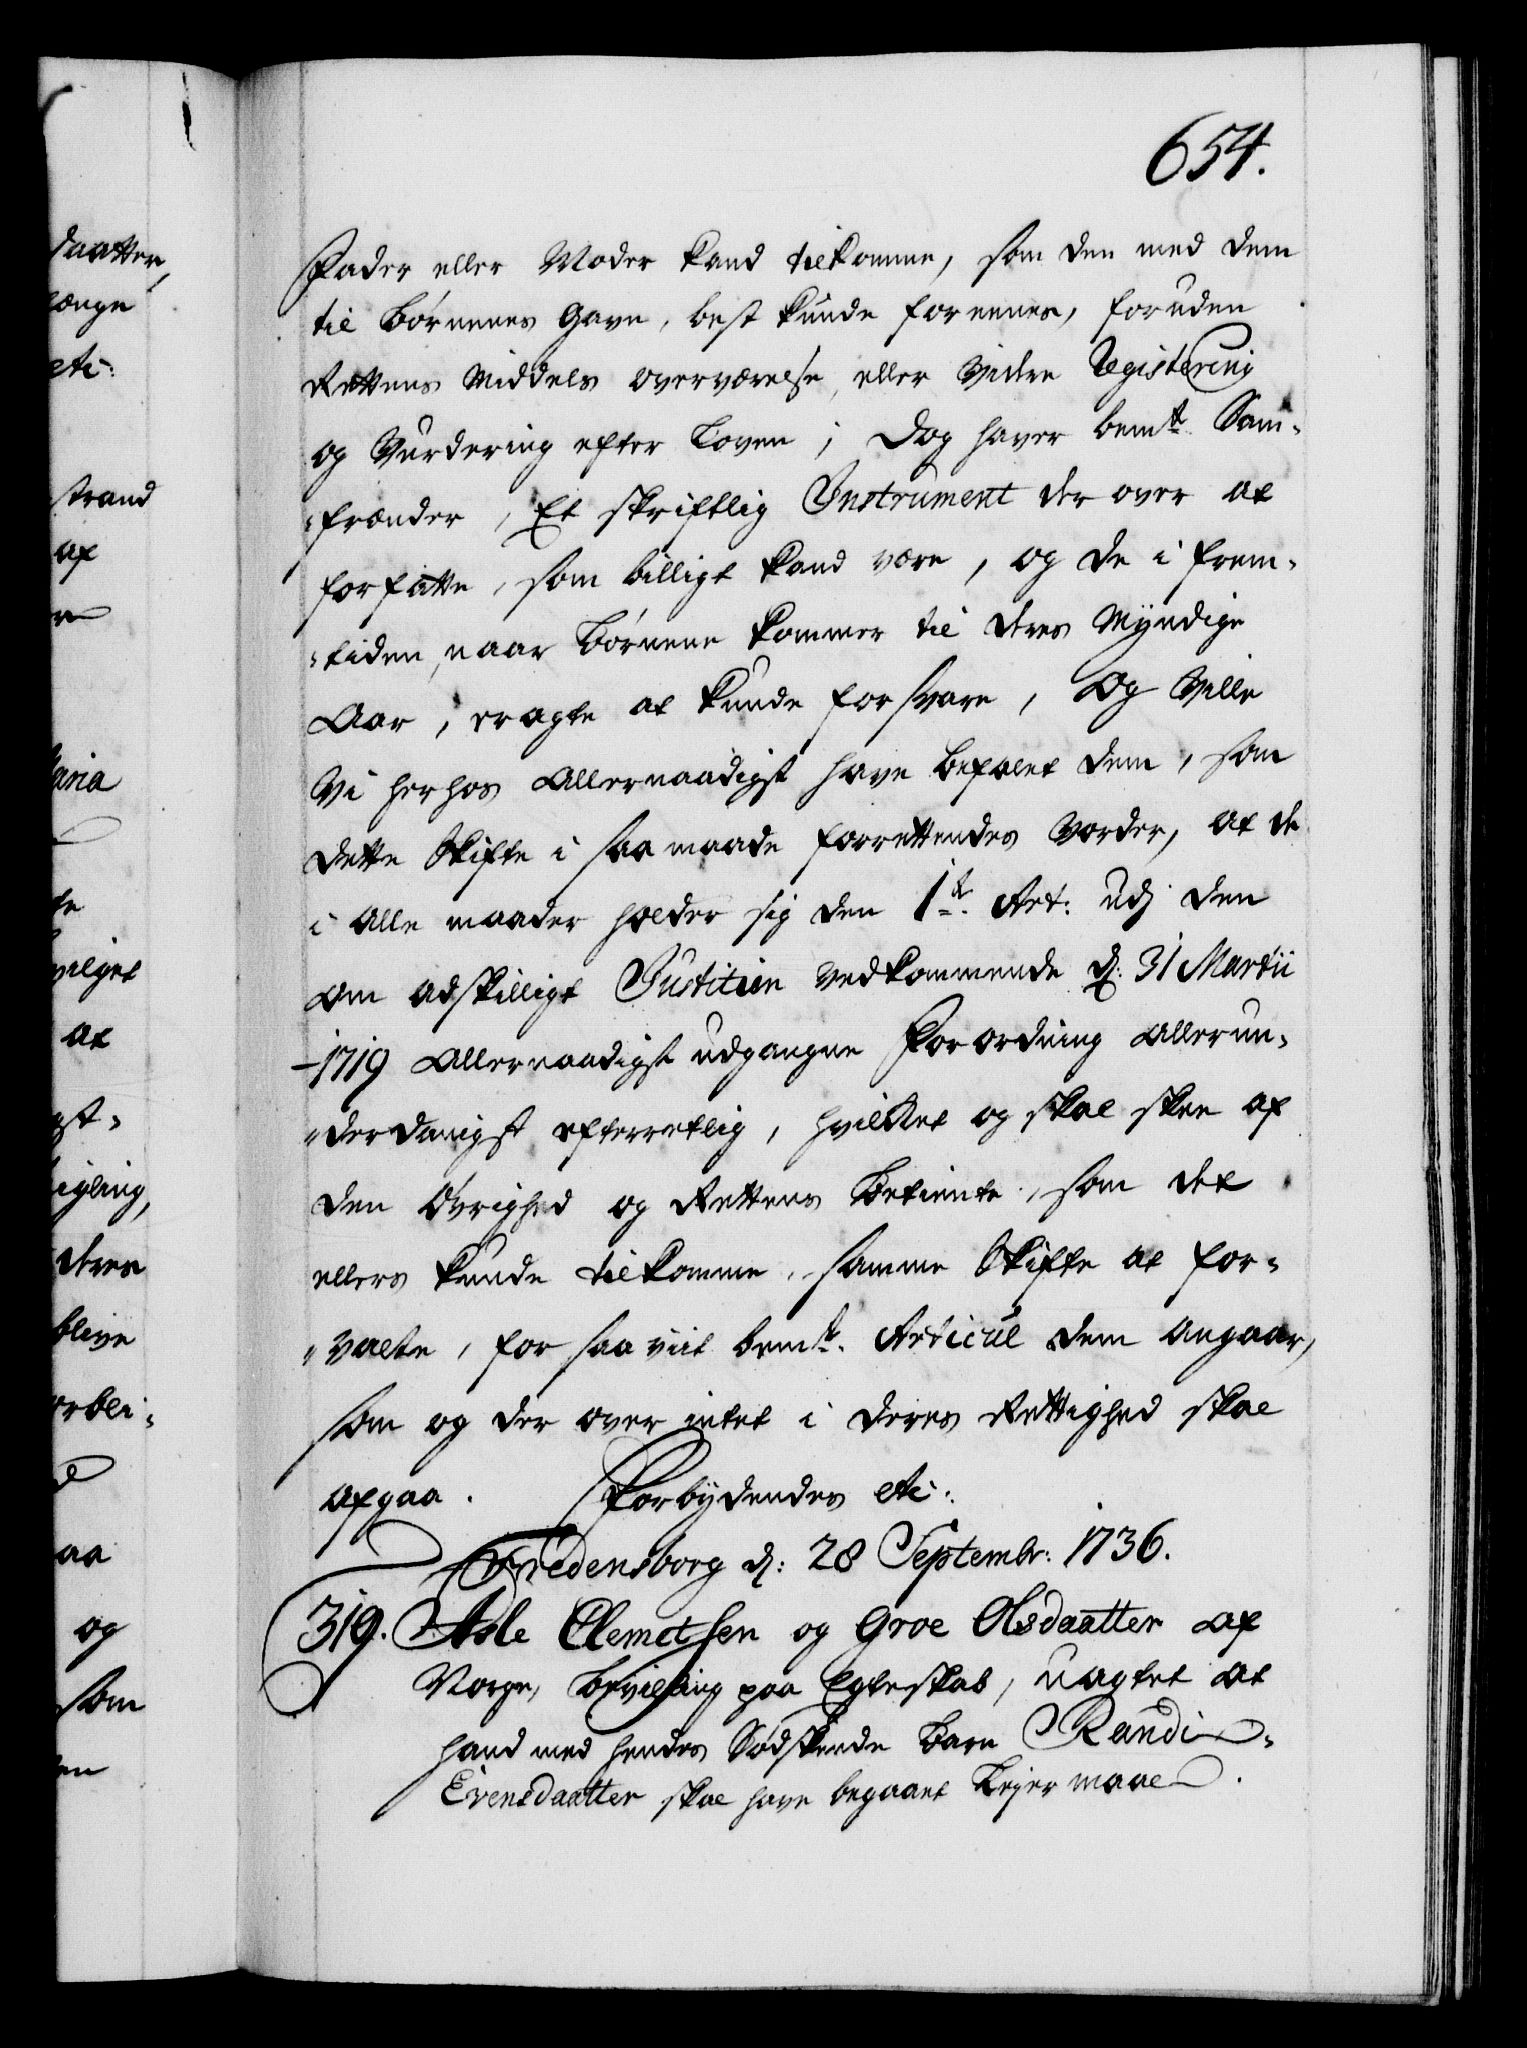 654.
Fader eller Moder kand tilkomme, som den med dem
til Børnenes Gavn, best kunde foreenes, foruden
Rettens Middels overværelse, eller Videre Registering
og Vurdering efter Loven; Dog haver bemte Sam-
frænder, Et skriftlig Instrument der over at
forfatte, som billigt kand være, og de i frem-
tiden, naar Børnene kommer til deres Myndige
Aar, eragte at kunde forsvare, Og Ville
Vi herhos Allernaadigst have befalet dem, som
dette Skifte i saa maade forrettendes vorder, at de
i Alle maader holder sig den 1te Art: udj den
om adskilligt Justitien vedkommende d: 31 Martii
1719 Allernaadigst udgangne Forordning allerun-
derdanigst efterretlig, hvilket og skal skee af
den Øvrighed og Rettens Betiente, som det
ellers kunde tilkomme, samme Skifte at for-
valte, for saa viit bemte Articul dem angaar,
som og der over intet i deres Rettighed skal
afgaa. Forbydendes etc:
Fredensborg d: 28 Septembr: 1736.
319. Asle Clemetsen og Groe Olsdaatter af
Norge, Bevilling paa Egteskab, uagtet at
hand med hendes Sødskende Barn Randi
Evensdaatter skal have begaaet Lejermaal.
daatter,
længe
etc:
strand
af
Maria
vilget
at
gst-
deres
blive
orbli-
aa
og
som